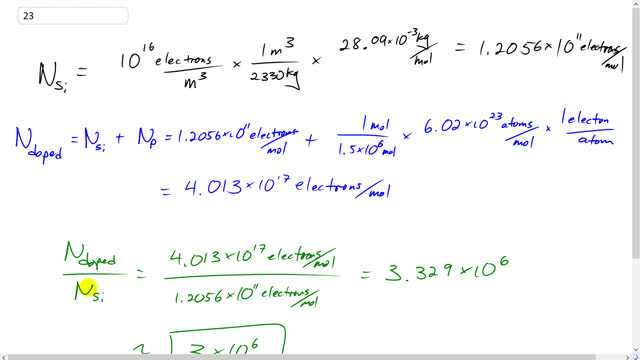 23
N_Si = 10^16 electrons/m^3 × 1 m^3/2330 kg × 28.09×10^-3 kg/mol = 1.2056×10^11 electrons/mol
N_doped = N_Si + N_P = 1.2056×10^11 electrons/mol + 1 mol/1.5×10^6 mol × 6.02×10^23 atoms/mol × 1 electon/atom
= 4.013×10^17 electrons/mol
N_doped/N_Si = 4.013×10^17 electrons/mol / 1.2056×10^11 electrons/mol = 3.329×10^6
≈ 3×10^6